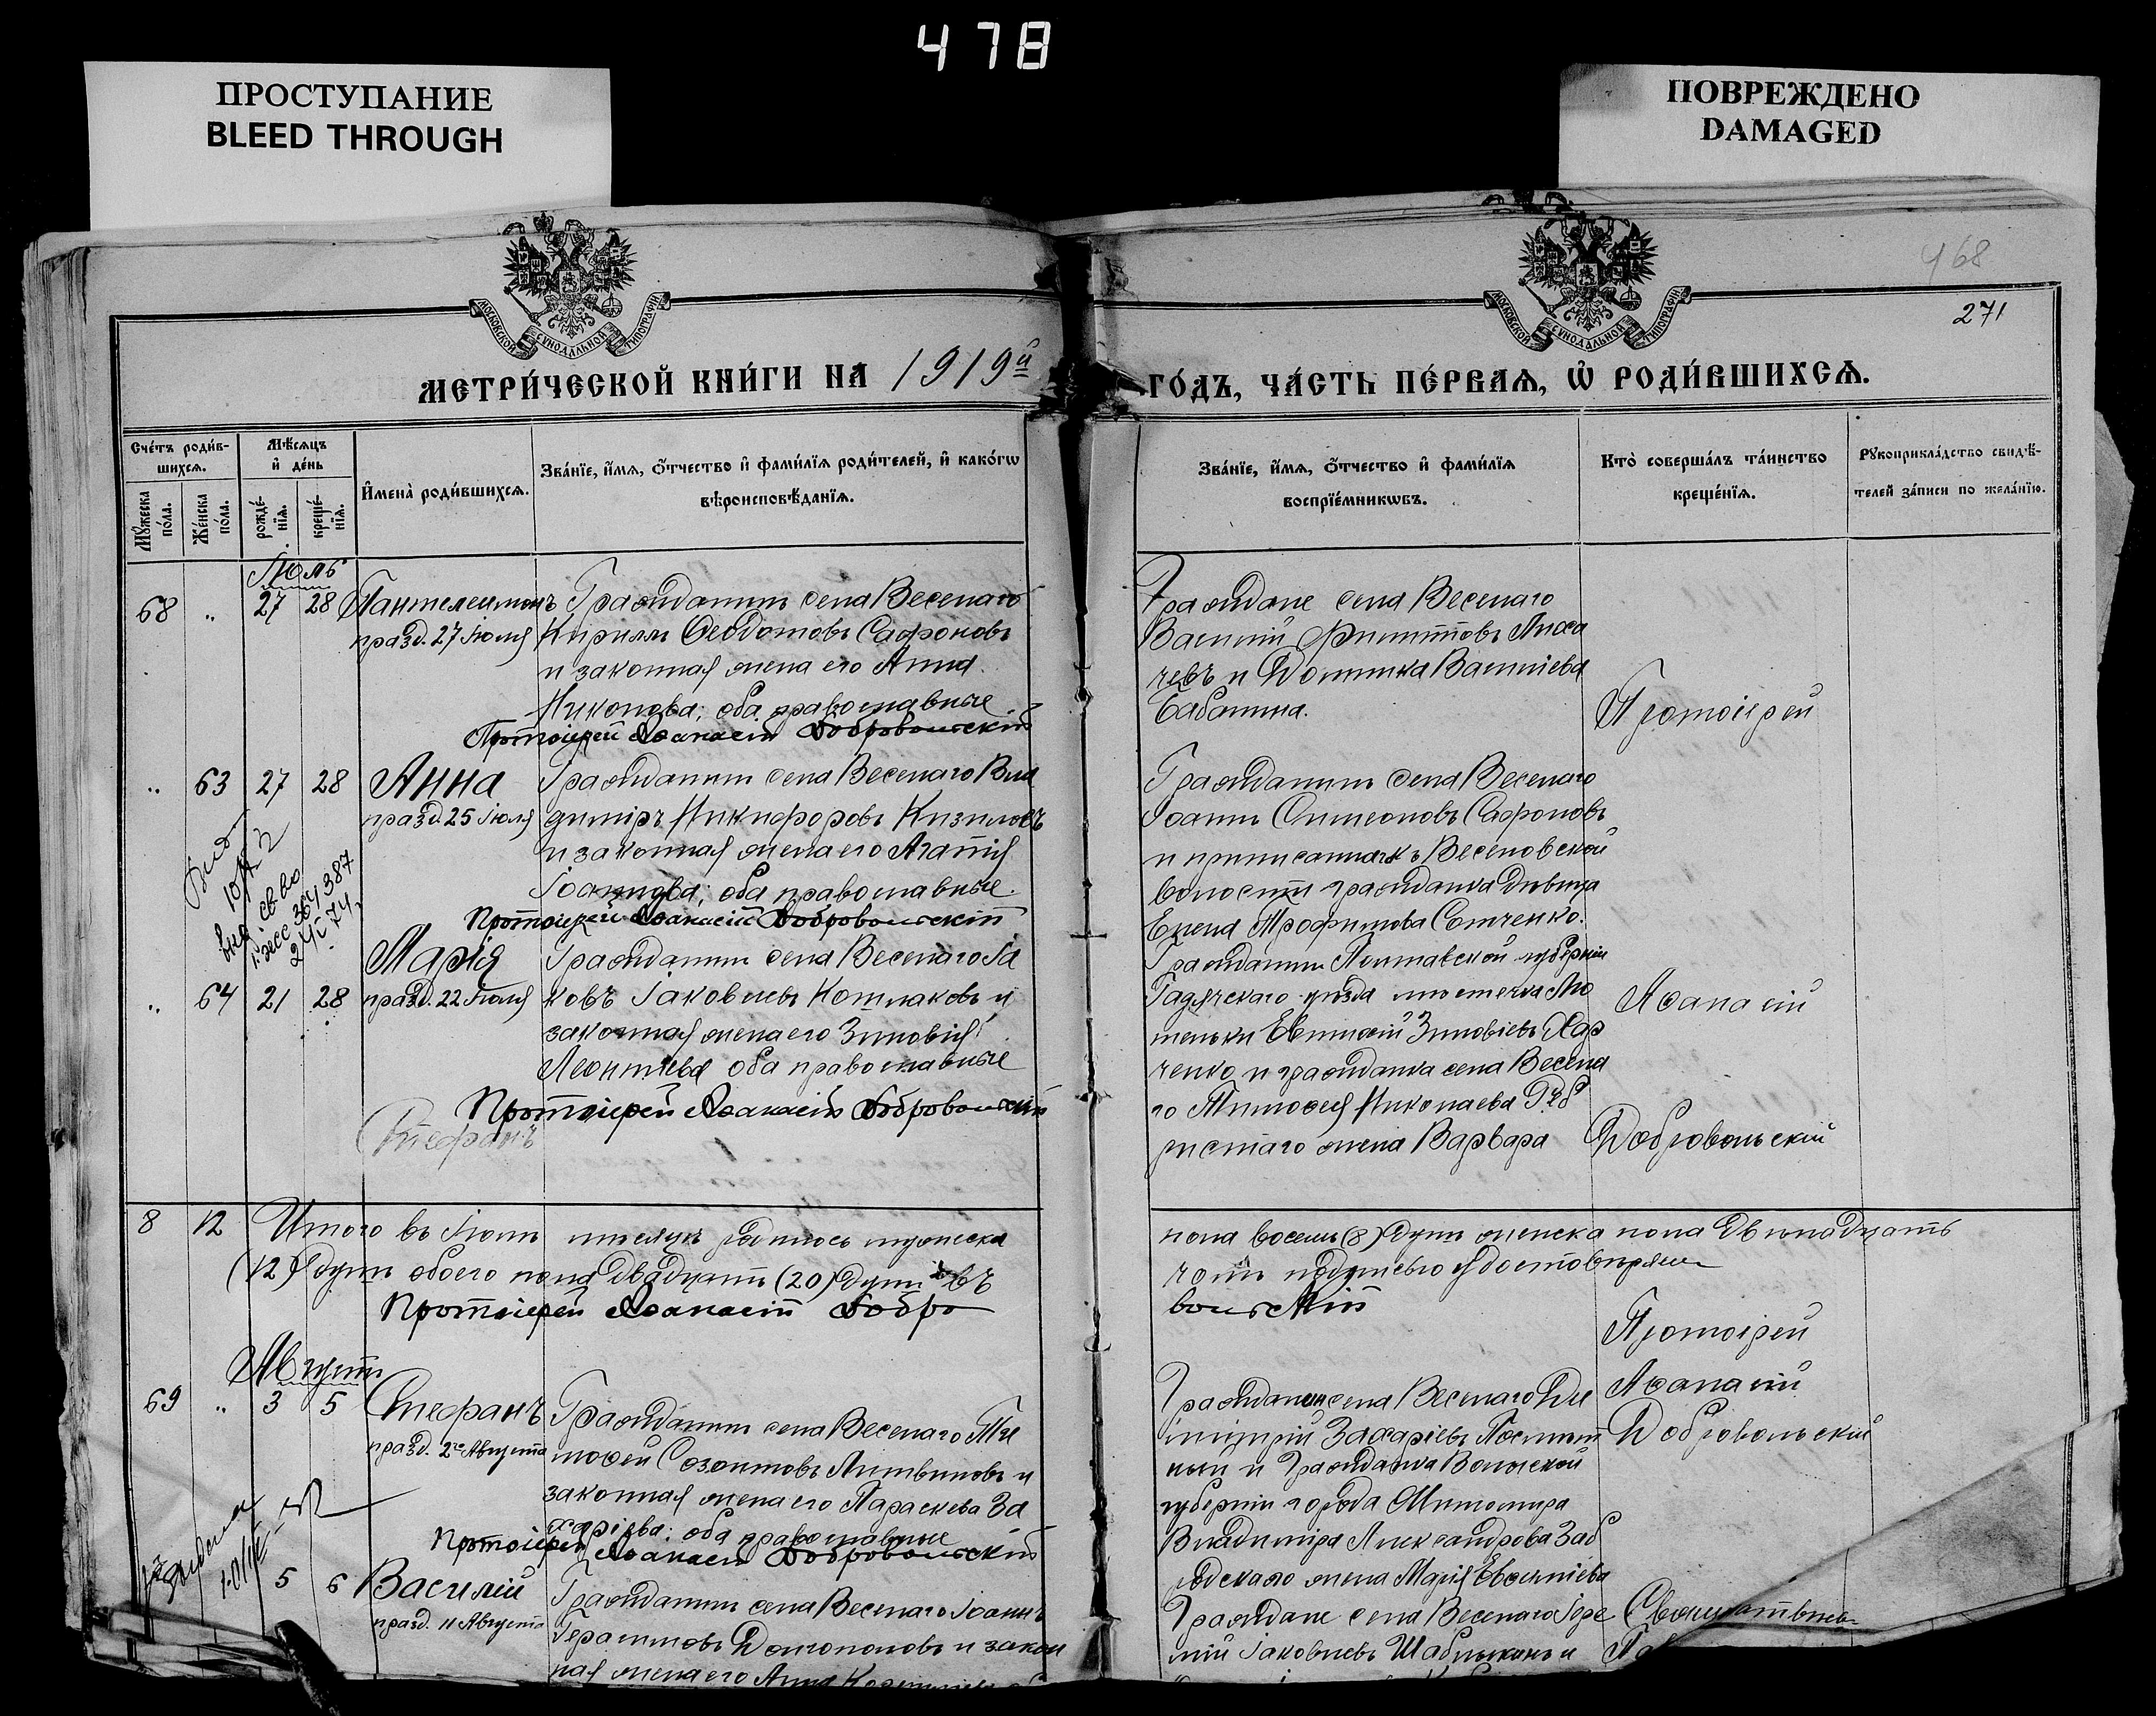 478
ПРОСТУПАНИЕ
BLEED THROUGH
ПОВРЕЖДЕНО
DAMAGED
468
271
МОСКОВСКОЙ СѴНОДАЛЬНОЙ ТИПОГРАФІИ
МОСКОВСКОЙ СѴНОДАЛЬНОЙ ТИПОГРАФІИ
МЕТРИ́ЧЕСКОЙ КНИ́ГИ НА 1919й ГО́ДЪ, ЧА́СТЬ ПЕ́РВАѦ, Ѡ РОДИ́ВШИХСѦ.
Сче́тъ роди́в-
шихсѧ.
Мꙋ́жеска
по́ла.
Же́нска
по́ла.
Мѣ́сѧцъ
и҆ де́нь
рожде́-
нїѧ.
креще́-
нїѧ.
И҆мена̀ роди́вшихсѧ.
Зва́нїе, и҆́мѧ, ѻ҆́тчество и҆ фами́лїѧ роди́телей, и҆ како́гѡ
вѣроисповѣ́данїѧ.
Зва́нїе, и҆́мѧ, ѻ҆́тчество и҆ фами́лїѧ
воспрїе́мникѡвъ.
Кто̀ соверша́лъ та́инство
креще́нїѧ.
Рꙋкоприкла́дство свидѣ́-
телей за́писи по жела́нїю.
Іюль
68 " 27 28 Пантелеимонъ
празд. 27 Іюля
Гражданинъ села Веселаго
Кириллъ Ѳеодотовъ Сафроновъ
и законная жена его Анна
Никонова; оба православные
Протоіерей Аѳанасій Добровольскій
Граждане села Веселаго
Василій Филипповъ Лиха
чевъ и Домника Васильева
Бабанина.
Протоіерей
" 63 27 28 Анна
празд 25 Іюля
Гражданинъ села Веселаго Вла
диміръ Никифоровъ Кизиловъ
и законная жена его Агапія
Іоаннова; оба православные.
Протоіерей Аѳанасій Добровольскій
Гражданинъ села Веселаго
Іоаннъ Симеоновъ Сафроновъ
и приписанная къ Веселовской
волости гражданка дѣвица
Елена Трофимова Сотченко.
" 64 21 28 Марія
празд. 22 Іюля
Гражданинъ села Веселаго Іа
ковъ Іаковлевъ Колпаковъ и
законная жена его Зиновія
Леонтьева оба православные
Протоіерей Аѳанасій Добровольскій
Стефанъ
Гражданинъ Полтавской губерніи
Гадячскаго уѣзда мѣстечка Лю
теньки Евѳимій Зиновіевъ Хар
ченко и гражданка села Весела
го Тимоѳея Николаева Реб
ристаго жена Варвара
Аѳанасій
Добровольскій
8 12 Итого въ Іюлѣ мѣсяцѣ родилось мужеска пола восемь (8) душъ женска пола двѣнадцать
(12) душъ обоего пола двадцать (20) душъ въ чемъ подписью удостовѣряемъ
Протоіерей Аѳанасій Добровольскій
Августъ
69 " 3 5 Стефанъ
празд. 2го Августа
Гражданинъ села Веселаго Ти
моѳей Созонтовъ Литвиновъ и
законная жена его Параскева За
харіева; оба православные
Протоіерей Аѳанасій Добровольскій
Гражданинъ села Веселаго Ди
митрій Захаріевъ
и Гражданка Волынской
губерніи города Житомира
Владиміра Александрова Заб
родскаго жена Марія Евѳиміева
Протоіерей
Аѳанасій
Добровольскій
5 6 Василій
празд. 11 Августа
Гражданинъ села Веселаго Іоаннъ
Герасимовъ Долгополовъ и закон
ная жена его Анна
Граждане села Веселаго
Іаковлевъ Шабрыкинъ и
Священникъ